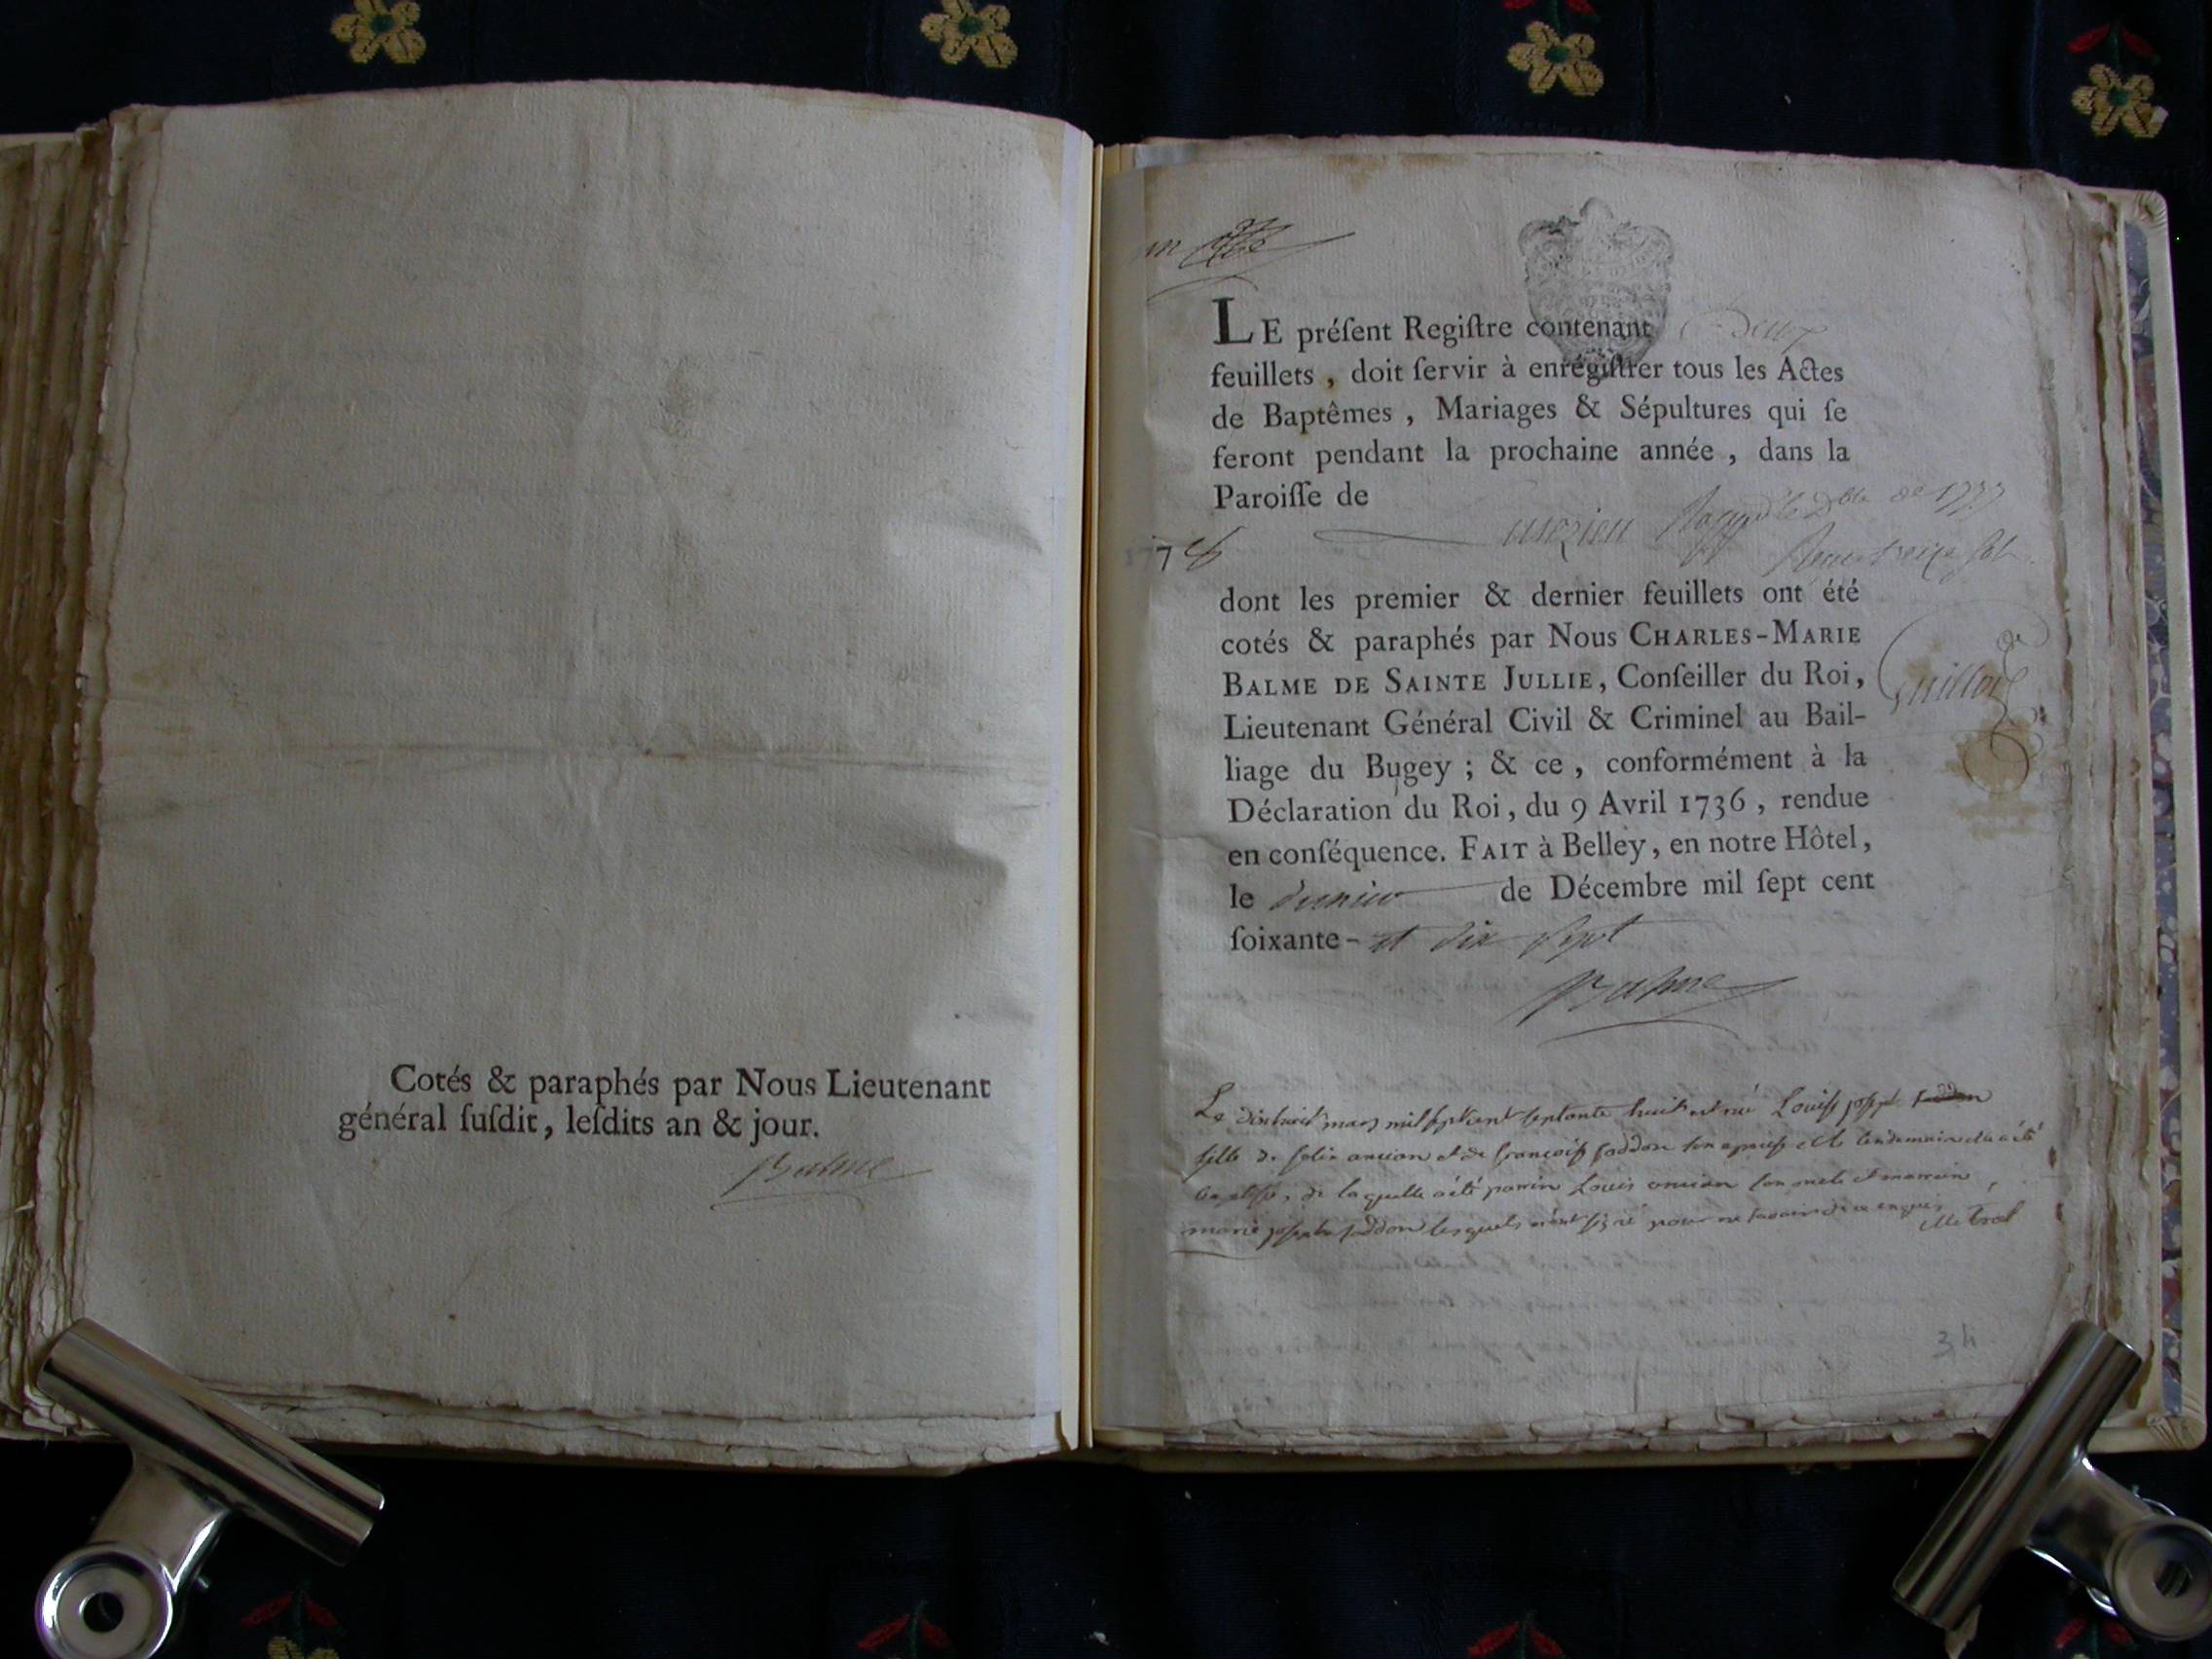 Cotés & paraphés par Nous Lieutenant
général ſuſdit, leſdits an & jour.
Balme
LE préſent Regiſtre contenant Deux
feuillets, doit ſervir à enrégiſtrer tous les Actes
de Baptêmes, Mariages & Sépultures qui ſe
feront pendant la prochaine année, dans la
Paroiſſe de
de 1777
dont les premier & dernier feuillets ont été
cotés & paraphés par Nous CHARLES-MARIE
BALME DE SAINTE JULLIE, Conſeiller du Roi,
Lieutenant Général Civil & Criminel au Bail-
liage du Bugey; & ce, conformément à la
Déclaration du Roi, du 9 Avril 1736, rendue
en conſéquence. FAIT à Belley, en notre Hôtel,
le dernier de Décembre mil ſept cent
ſoixante- et dix sept
Balme
Le dixhuit mars mil sept cent septante huit est née Louise josephe
fille de felix ancian et de françoise foddon son epouse et le lendemain elle a été
baptisée, de laquelle a été parrin Louis ancian son oncle et marraine
marie josephe foddon lesquels n'ont signé pour ne savoir de ce enquis
34